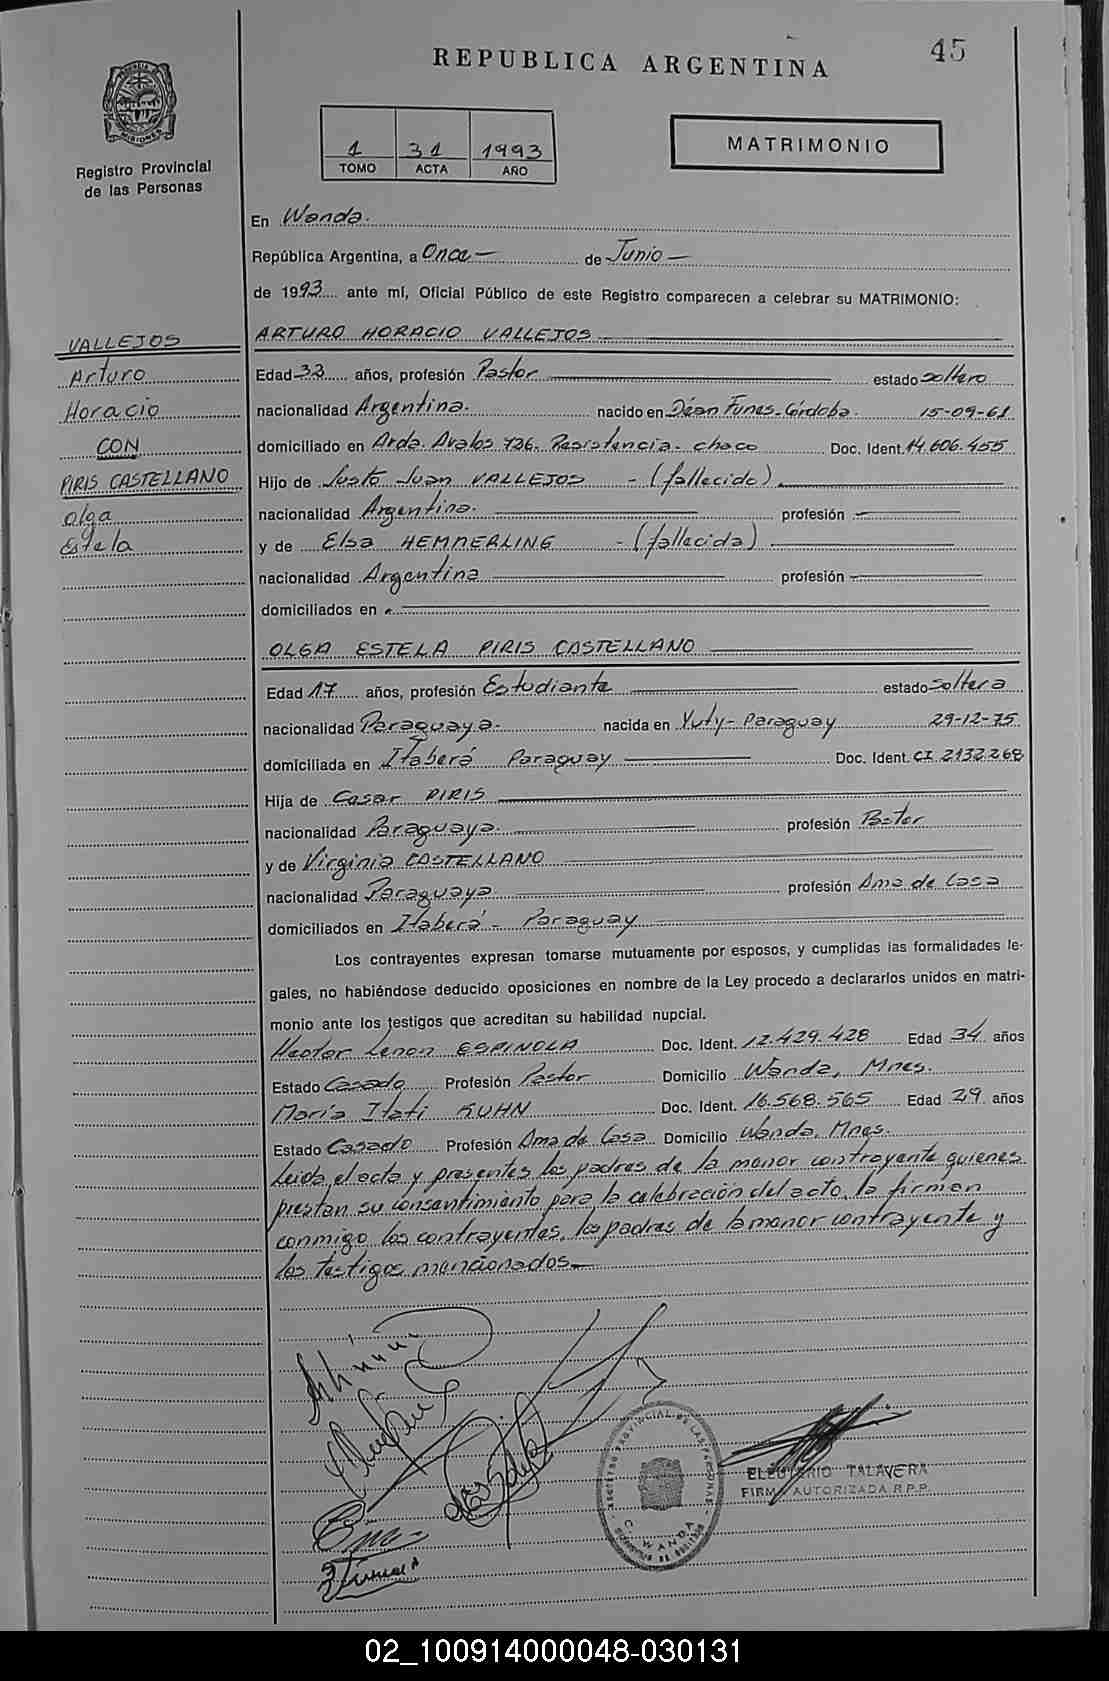 45
REPUBLICA ARGENTINA
PROVINCIA DE MISIONES
Registro Provincial
de las Personas
1 31 1993
TOMO ACTA AÑO
MATRIMONIO
En Wanda.
República Argentina, a Once de Junio
de 1993 ante mí, Oficial Público de este Registro comparecen a celebrar su MATRIMONIO:
VALLEJOS
Arturo
Horacio
CON
PIRIS CASTELLANO
Olga
Estela
ARTURO HORACIO VALLEJOS
Edad 32 años, profesión Pastor estado soltero
nacionalidad Argentina. nacido en Déan Funes-Córdoba. 15-09-61
domiciliado en Avda. Avalos 726. Resistencia-chaco Doc. Ident. 14.606.455
Hijo de Justo Juan VALLEJOS - (fallecido)
nacionalidad Argentina. profesión
y de Elsa HEMMERLING - (fallecida)
nacionalidad Argentina profesión
domiciliados en
OLGA ESTELA PIRIS CASTELLANO
Edad 17 años, profesión Estudiante estado soltera
nacionalidad Paraguaya. nacida en Yuty-Paraguay 29-12-75
domiciliada en Itaberá Paraguay Doc. Ident. CI 2132268
Hija de Cesar PIRIS
nacionalidad Paraguaya. profesión Pastor
y de Virginia CASTELLANO
nacionalidad Paraguaya. profesión Ama de Casa
domiciliados en Itaberá - Paraguay
Los contrayentes expresan tomarse mutuamente por esposos, y cumplidas las formalidades le-
gales, no habiéndose deducido oposiciones en nombre de la Ley procedo a declararlos unidos en matri-
monio ante los testigos que acreditan su habilidad nupcial.
Hector Lenon ESPINOLA Doc. Ident. 12.429.428 Edad 34 años
Estado Casado Profesión Pastor Domicilio Wanda, Mnes.
María Itatí KUHN Doc. Ident. 16.568.565 Edad 29 años
Estado Casado Profesión Ama de Casa Domicilio Wanda, Mnes.
Leida el acta y presentes los padres de la menor contrayente quienes
prestan su consentimiento para la celebración del acto, la firman
conmigo los contrayentes, los padres de la menor contrayente y
los testigos mencionados.
REGISTRO PROVINCIAL DE LAS PERSONAS
WANDA
ELEUTERIO TALAVERA
FIRMA AUTORIZADA R.P.P.
02_100914000048-030131